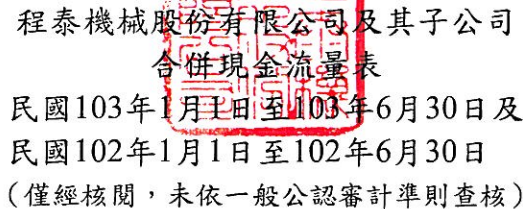 程泰機械股份有限公司及其子公司
合併現金流量表
民國103年1月1日至103年6月30日及
民國102年1月1日至102年6月30日
(僅經核閱,未依一般公認審計準則查核)